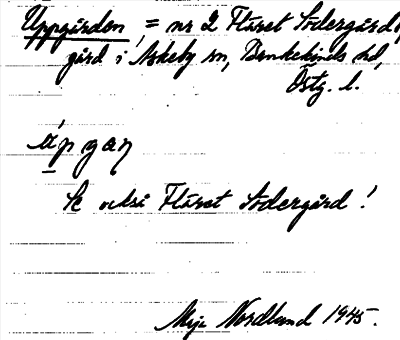 Uppgården, = nr 2 Fläret Södergård,
gård i Askeby sn, Bankekinds hd,
Östg. l.
úpgan
Se också Fläret Södergård!
Maja Nordlund 1945.